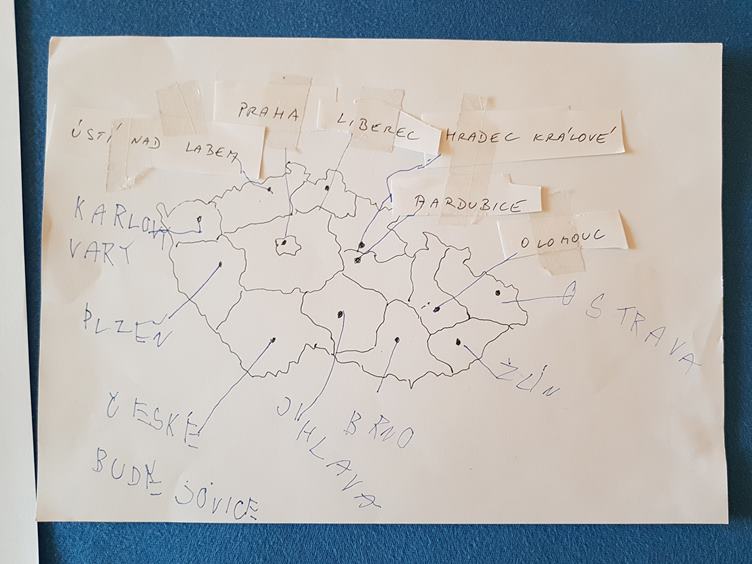 PRAHA
LIBEREC
HRADEC KRÁLOVÉ
ÚSTÍ NAD LABEM
AARDUBICE
KARLOVY
VARY
OLOMOUC
PLZEŇ
OSTRAVA
ŽLÍN
ČESKÉ
BUDĚJOVICE
JIHLAVA
BRNO